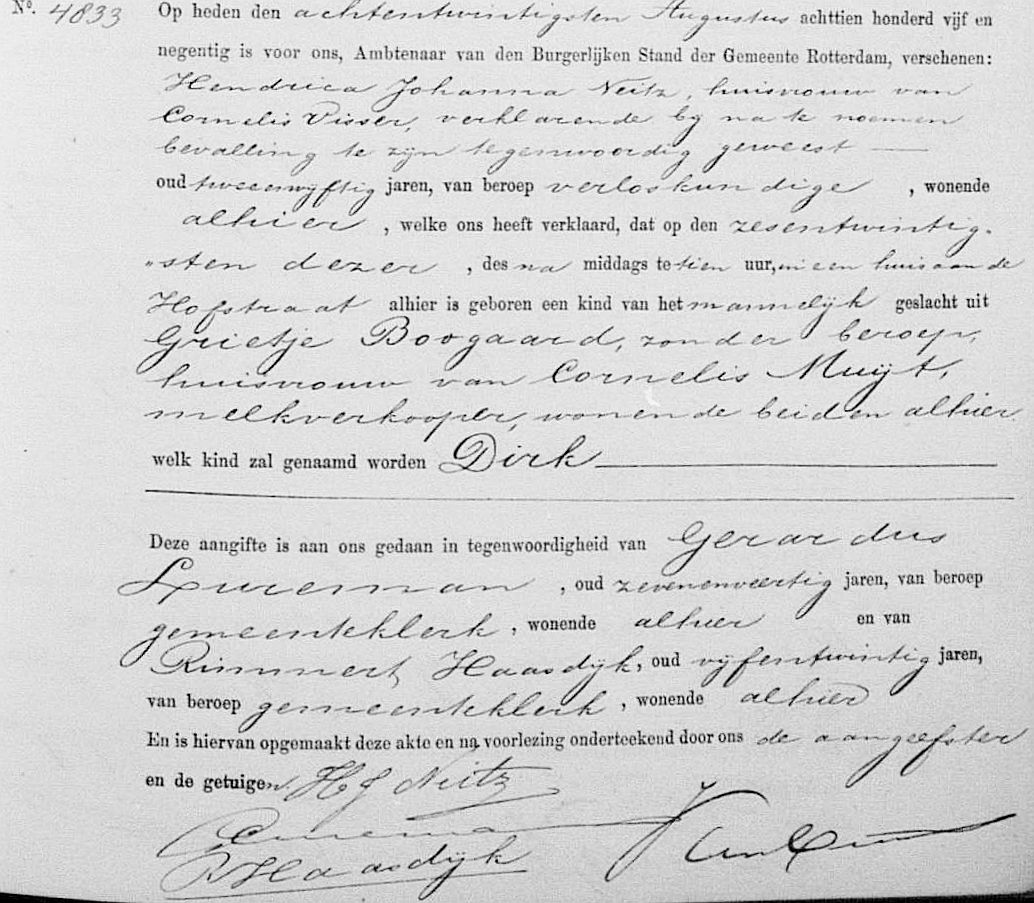 No. 4833 Op heden den achtentwintigsten Augustus achttien honderd vijf en
negentig is voor ons, Ambtenaar van den Burgerlijken Stand der Gemeente Rotterdam, verschenen:
Hendrica Johanna Neitz, huisvrouw van
Cornelis Visser, verklarende bij na te noemen
bevalling te zijn tegenwoordig geweest
oud tweeenvijftig jaren, van beroep verloskundige, wonende
alhier, welke ons heeft verklaard, dat op den zesentwintig-
"sten dezer, des na middags te tien uur, in een huis aan de
Hofstraat alhier is geboren een kind van het mannelijk geslacht uit
Grietje Boogaard, zonder beroep,
huisvrouw van Cornelis Muijt,
melkverkooper, wonende beiden alhier
welk kind zal genaamd worden Dirk
Deze aangifte is aan ons gedaan in tegenwoordigheid van Gerardus
, oud zevenenveertig jaren, van beroep
gemeenteklerk, wonende alhier en van
Rimmert Haasdijk, oud vijfentwintig jaren,
van beroep gemeenteklerk, wonende alhier
En is hiervan opgemaakt deze akte en na voorlezing onderteekend door ons de aangeefster
en de getuigen. H J Neitz
R Haasdijk